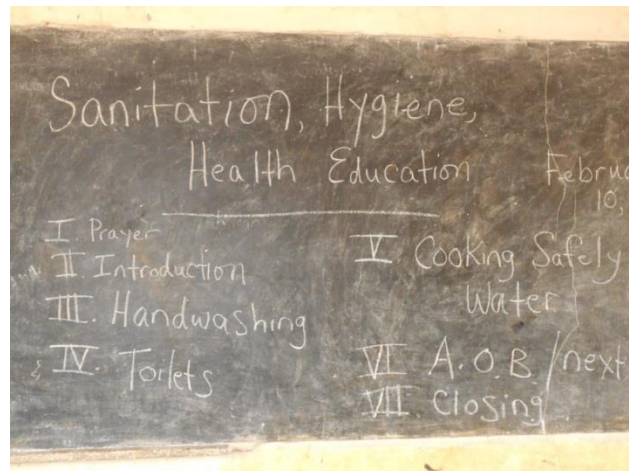 Sanitation, Hygiene,
Health Education
Februa
10,
I Prayer
II. Introduction
III. Handwashing
IV. Toilets
V. Cooking Safely
Water
VI A.O.B./next
VII. Closing